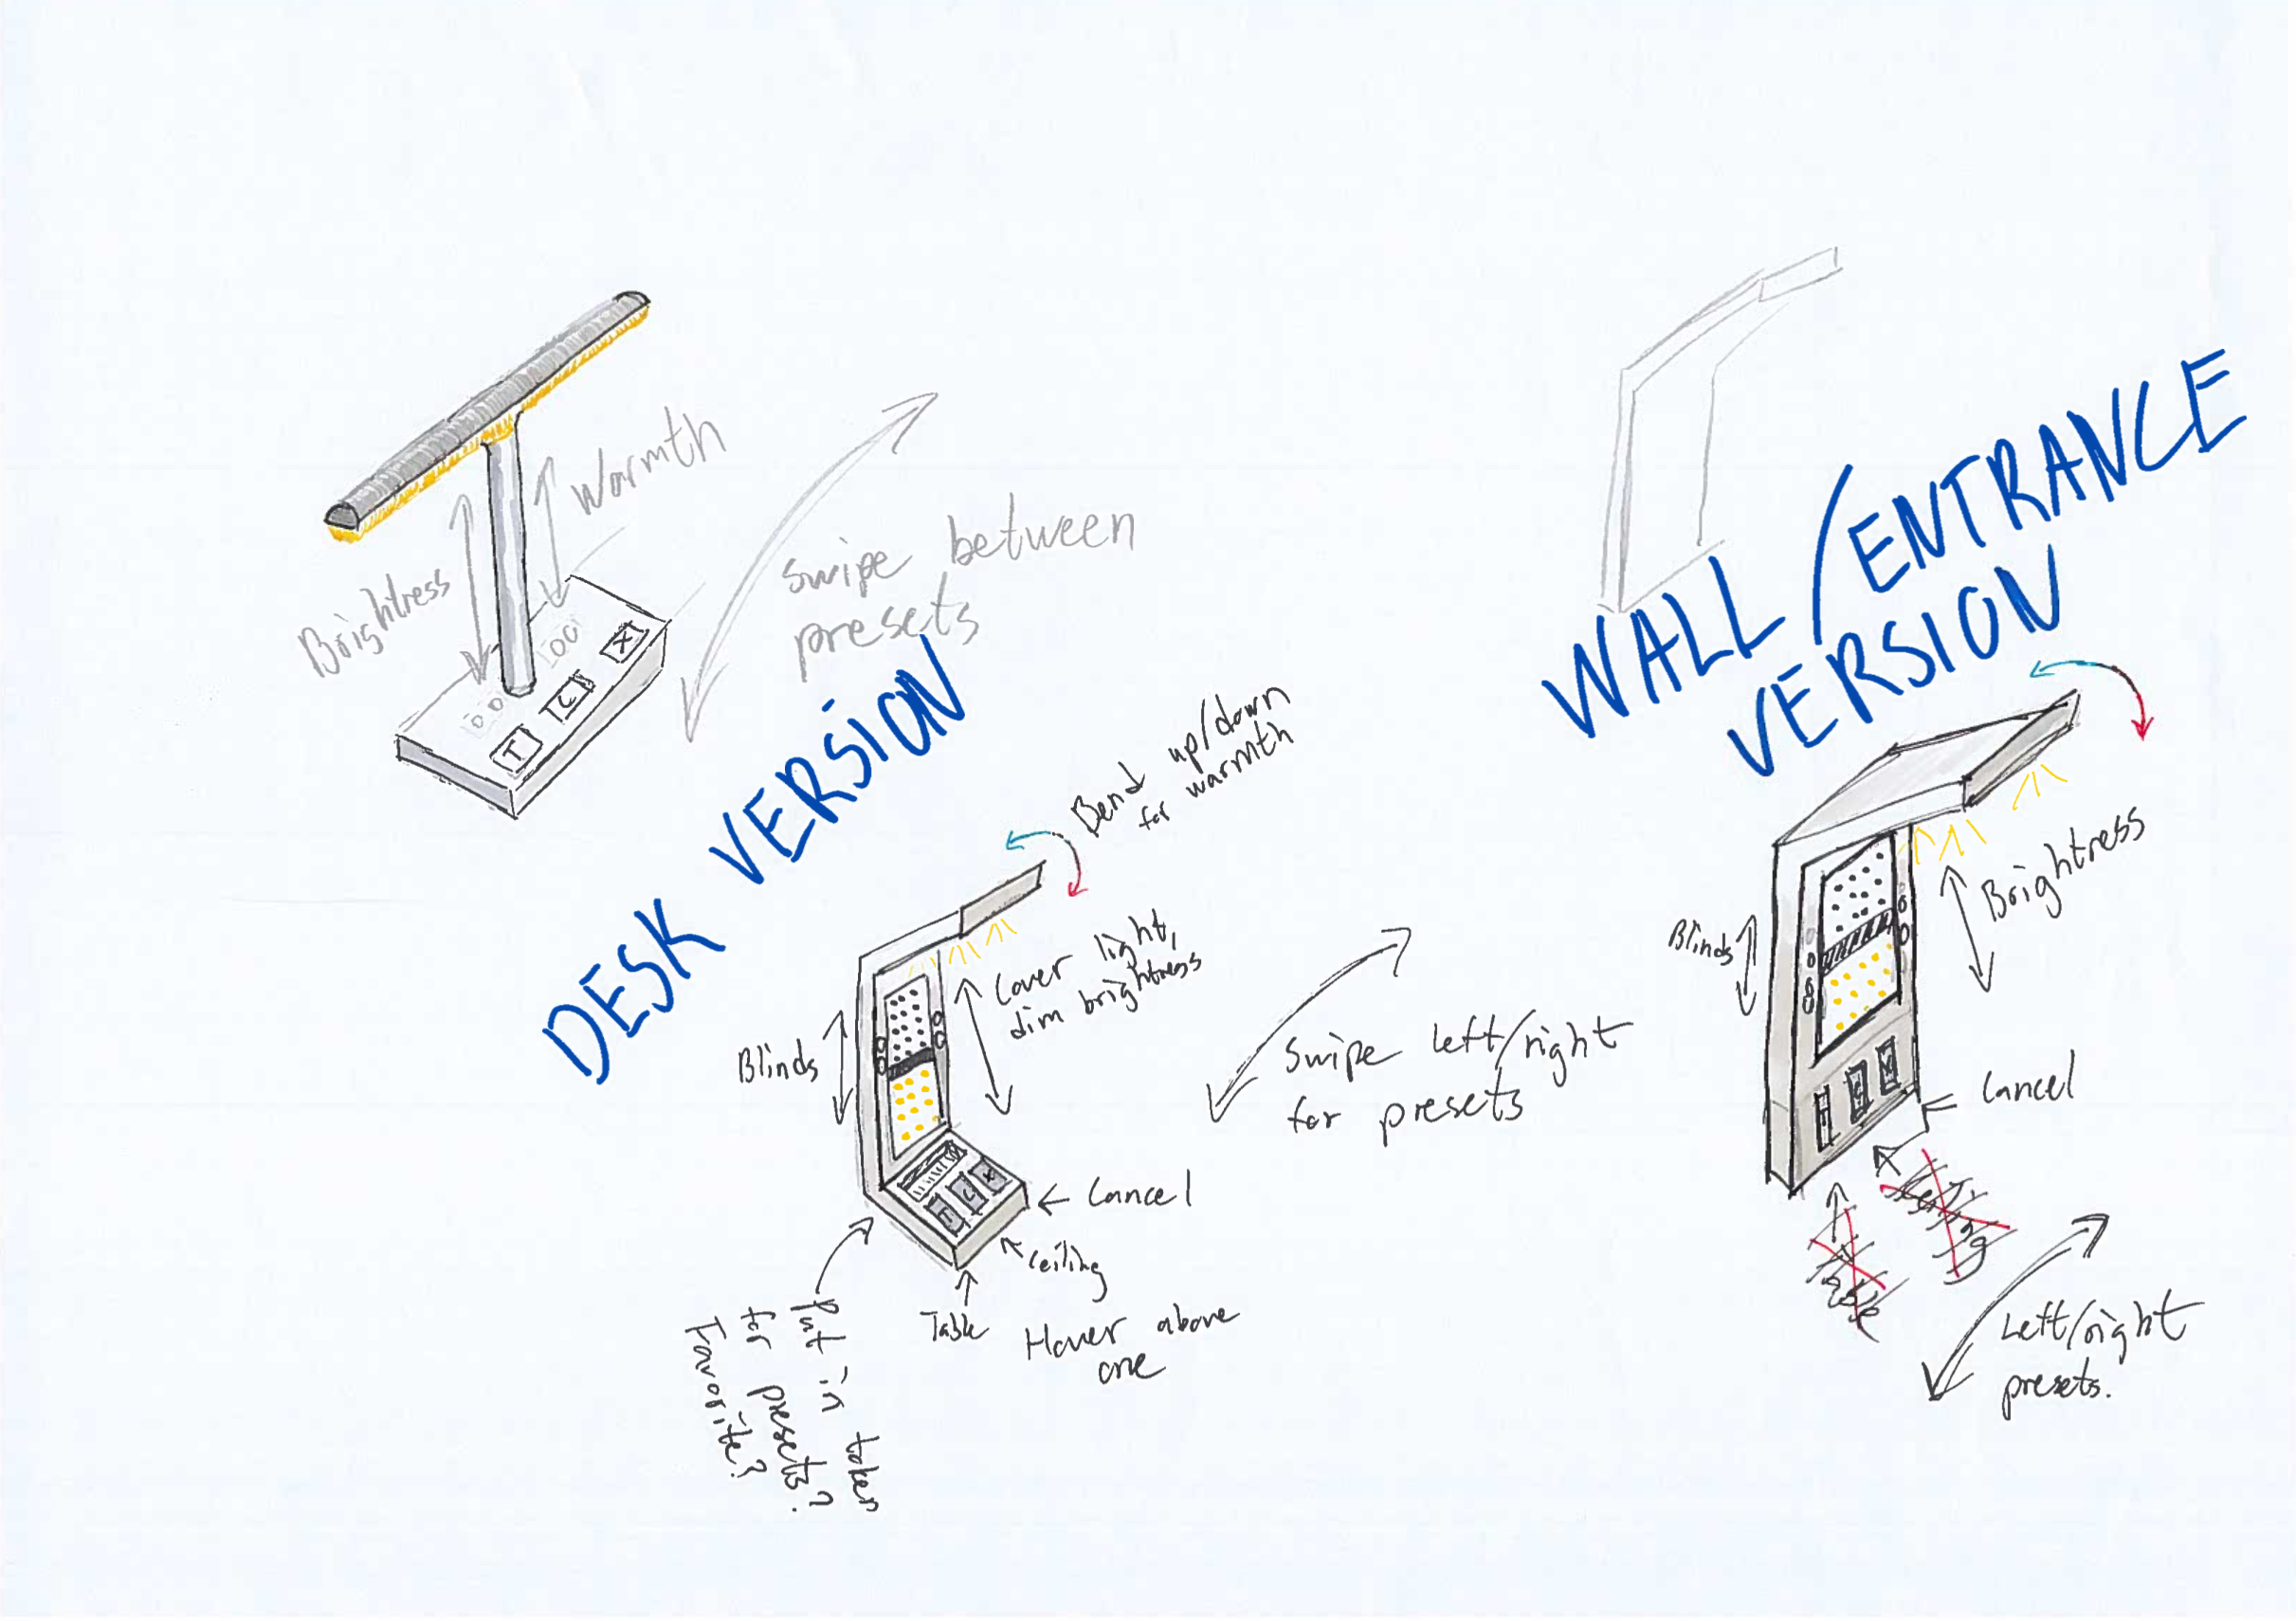 Brightness
Warmth
Swipe between
presets
T
C
X
DESK VERSION
Bend up/down
for warmth
Cover light,
dim brightness
Blinds
Swipe left/right
for presets
T
C
X
← Cancel
Ceiling
Table
Hover above
one
Put in token
for presets?
Favorite?
WALL/ENTRANCE
VERSION
Brightness
Blinds
T
C
X
Cancel
Left/right
presets.